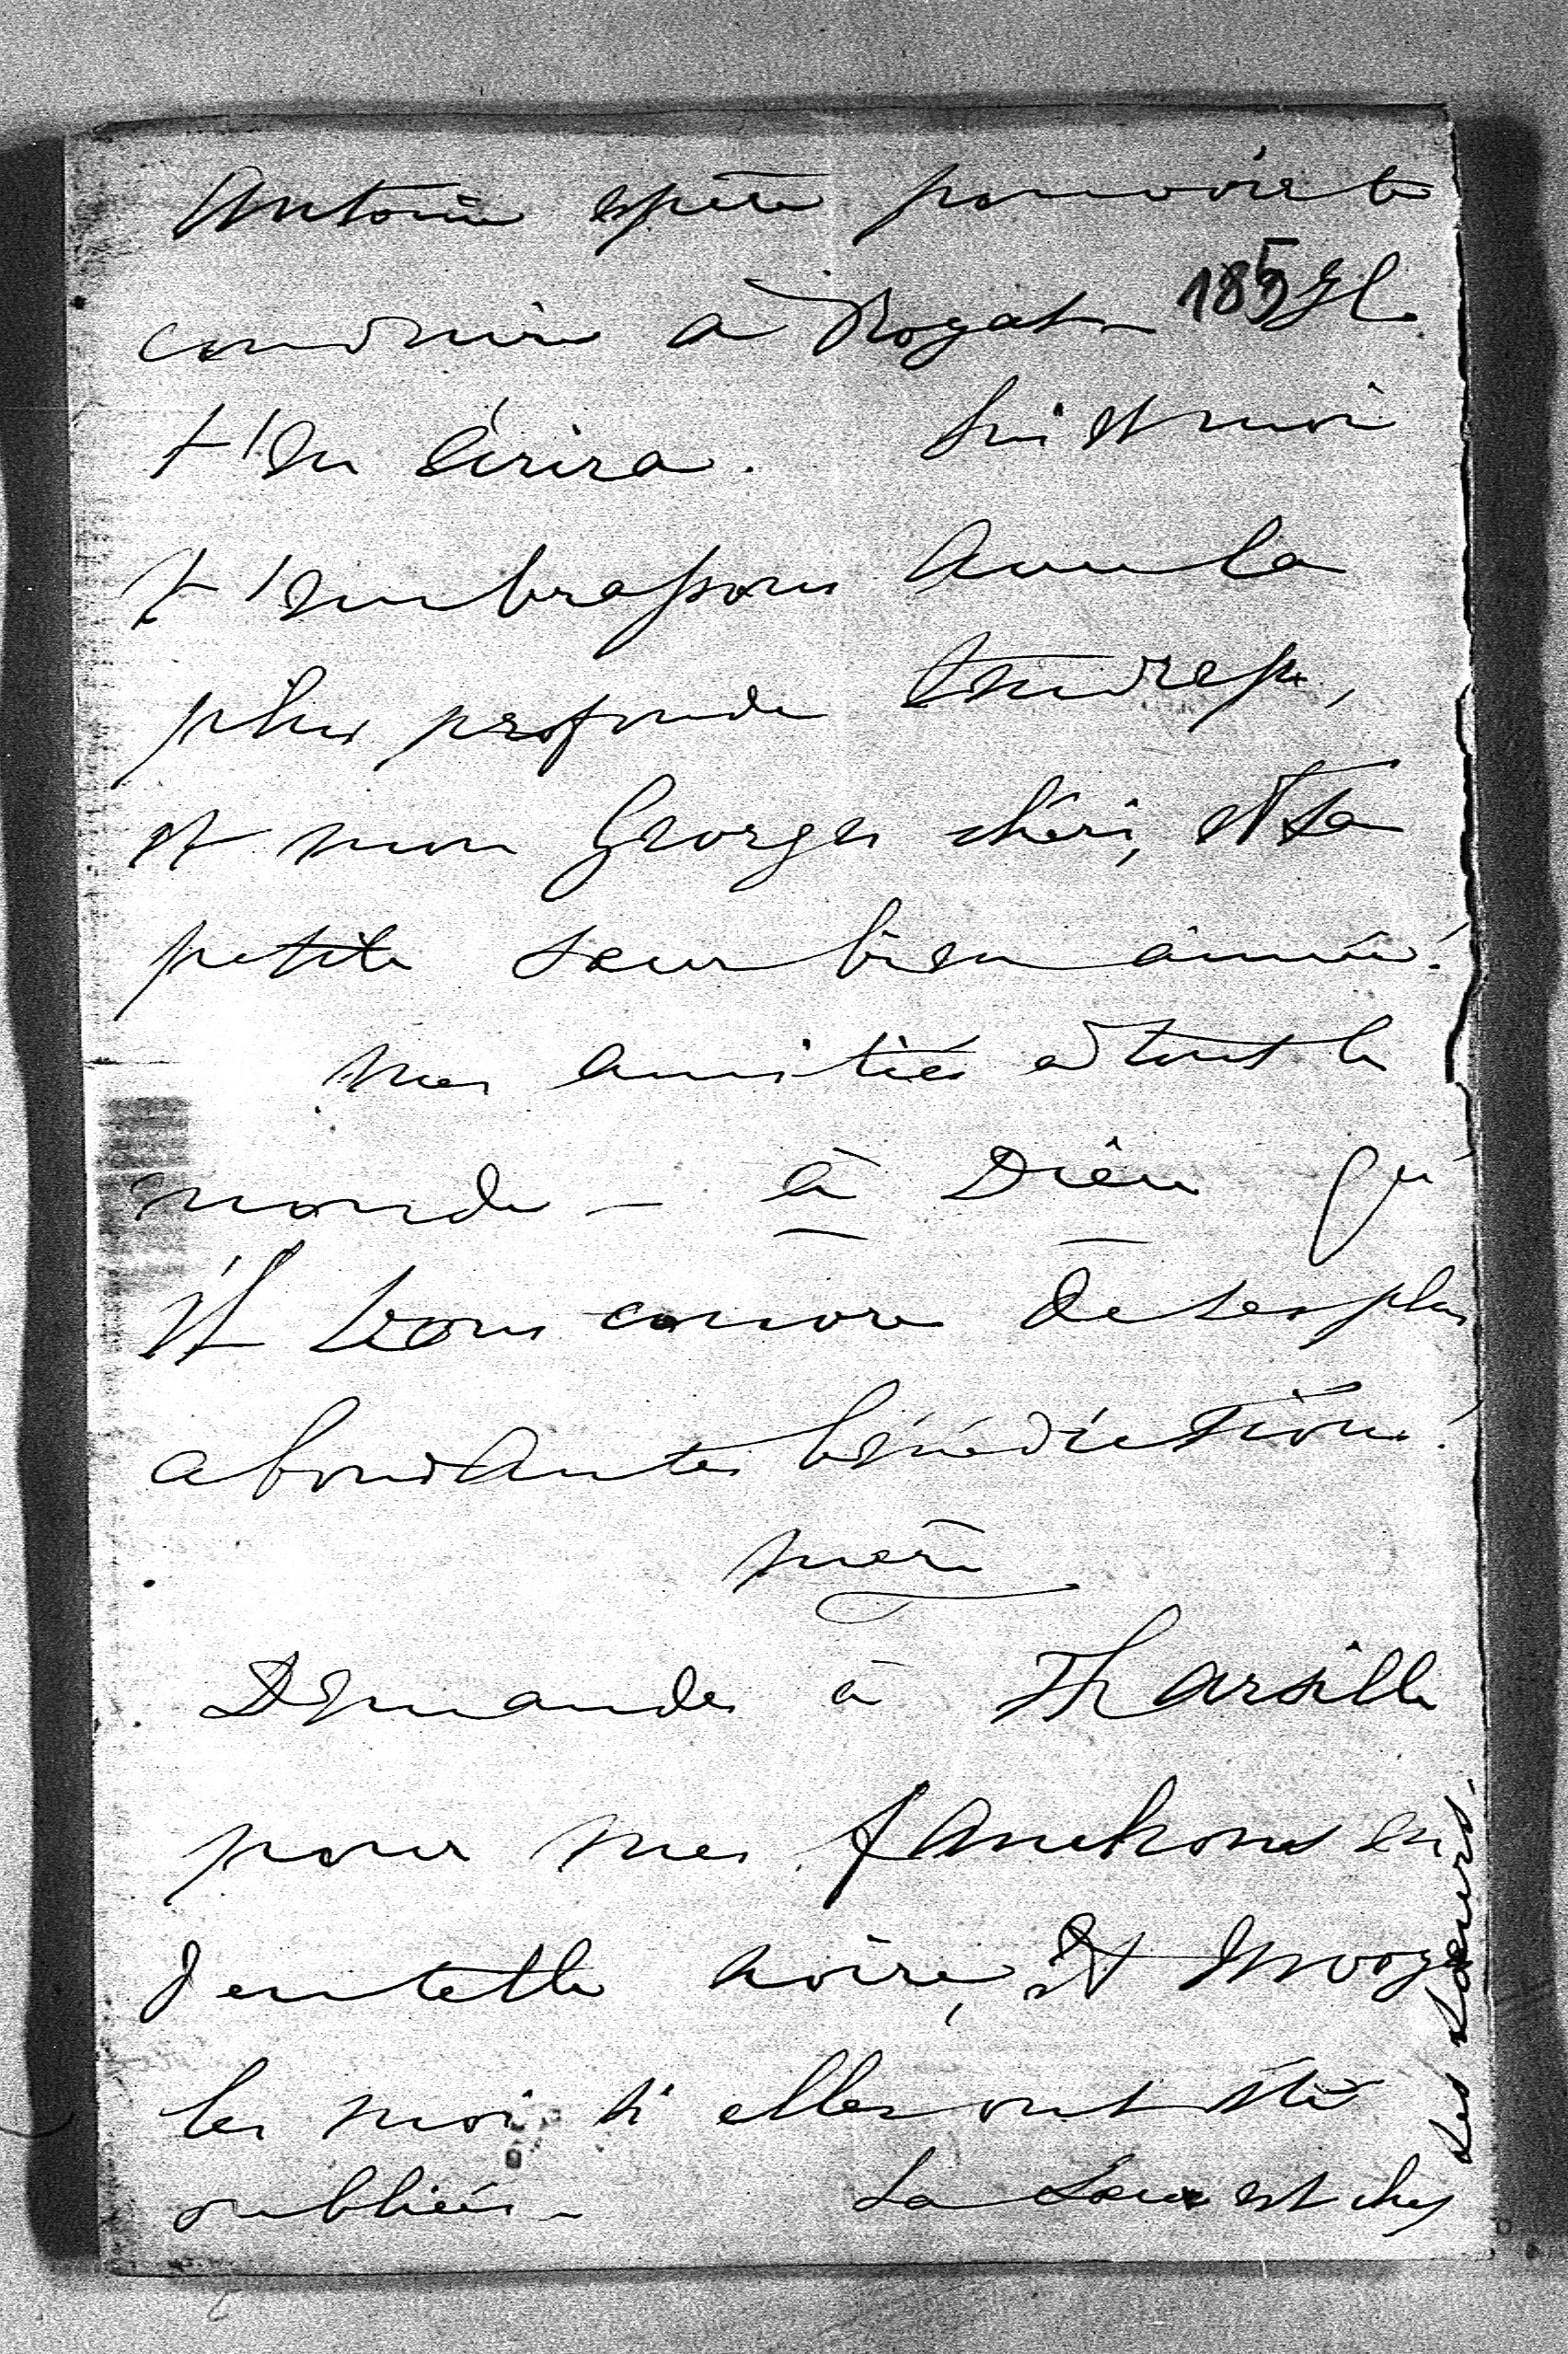 Antoine espère pouvoir te
conduire à Royat – 185 Il
t'en écrira. Lui et moi
t'embrassons avec la
plus profonde tendresse,
et mon Georges chéri, et sa
petite sœur bien aimée!
Mes amitiés à tout le
monde – à Dieu qu'
il vous couvre de ses plus
abondantes bénédictions!
mère
Demandes à Tharsille
pour mes fanchons en
dentelle noire, et envoye
les moi si elles ont été
oubliées – La Sœur est chez
les sœurs.